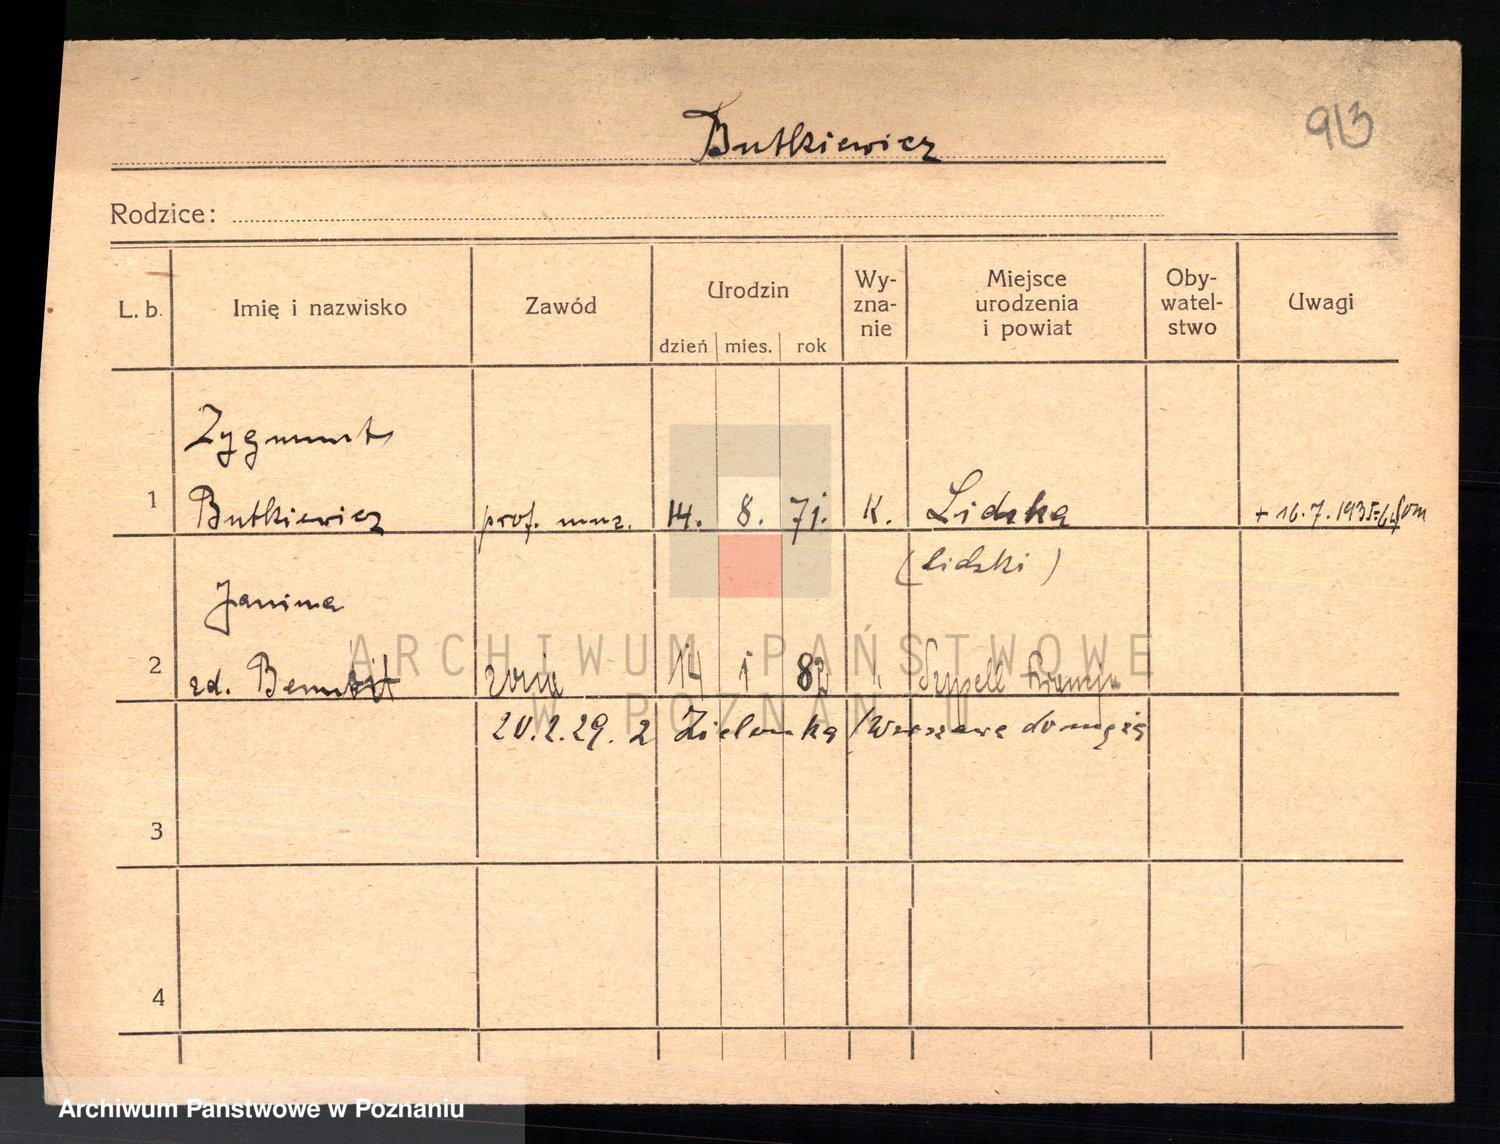 Butkiewicz
913
Rodzice:
L. b. Imię i nazwisko Zawód Urodzin dzień mies. rok Wy-zna-nie Miejsce urodzenia i powiat Oby-watel-stwo Uwagi
Zygmunt
1 Butkiewicz prof. muz. 14. 8. 71. K. Lidzka + 16.7.1935
(Lidzki)
Janina
2 zd. żona 14 1 8
20.2.29. z Zielonka /Warszawa do męża
3
4
ARCHIWUM PAŃSTWOWE
W POZNANIU
Archiwum Państwowe w Poznaniu